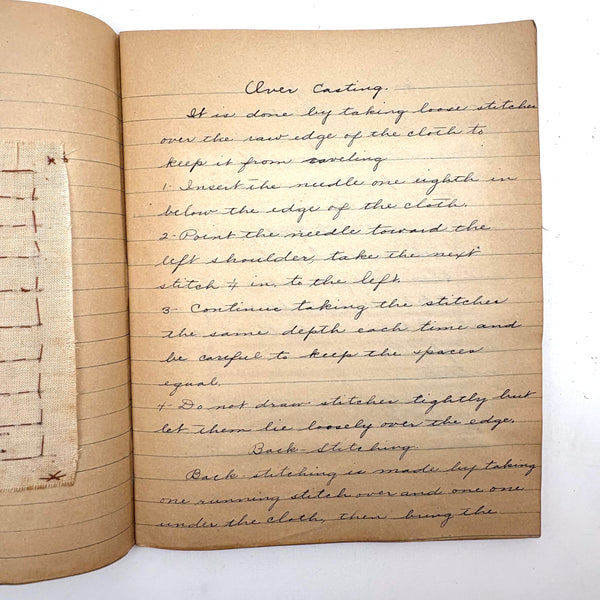 Over Casting.
It is done by taking loose stitches
over the raw edge of the cloth to
keep it from raveling
1- Insert the needle one eighth in
below the edge of the cloth.
2- Point the needle toward the
left shoulder, take the next
stitch ¼ in. to the left.
3- Continue taking the stitches
the same depth each time and
be careful to keep the spaces
equal.
4- Do not draw stitches tightly but
let them lie loosely over the edge.
Back-Stitching.
Back stitching is made by taking
one running stitch over and one one
under the cloth, then bring the